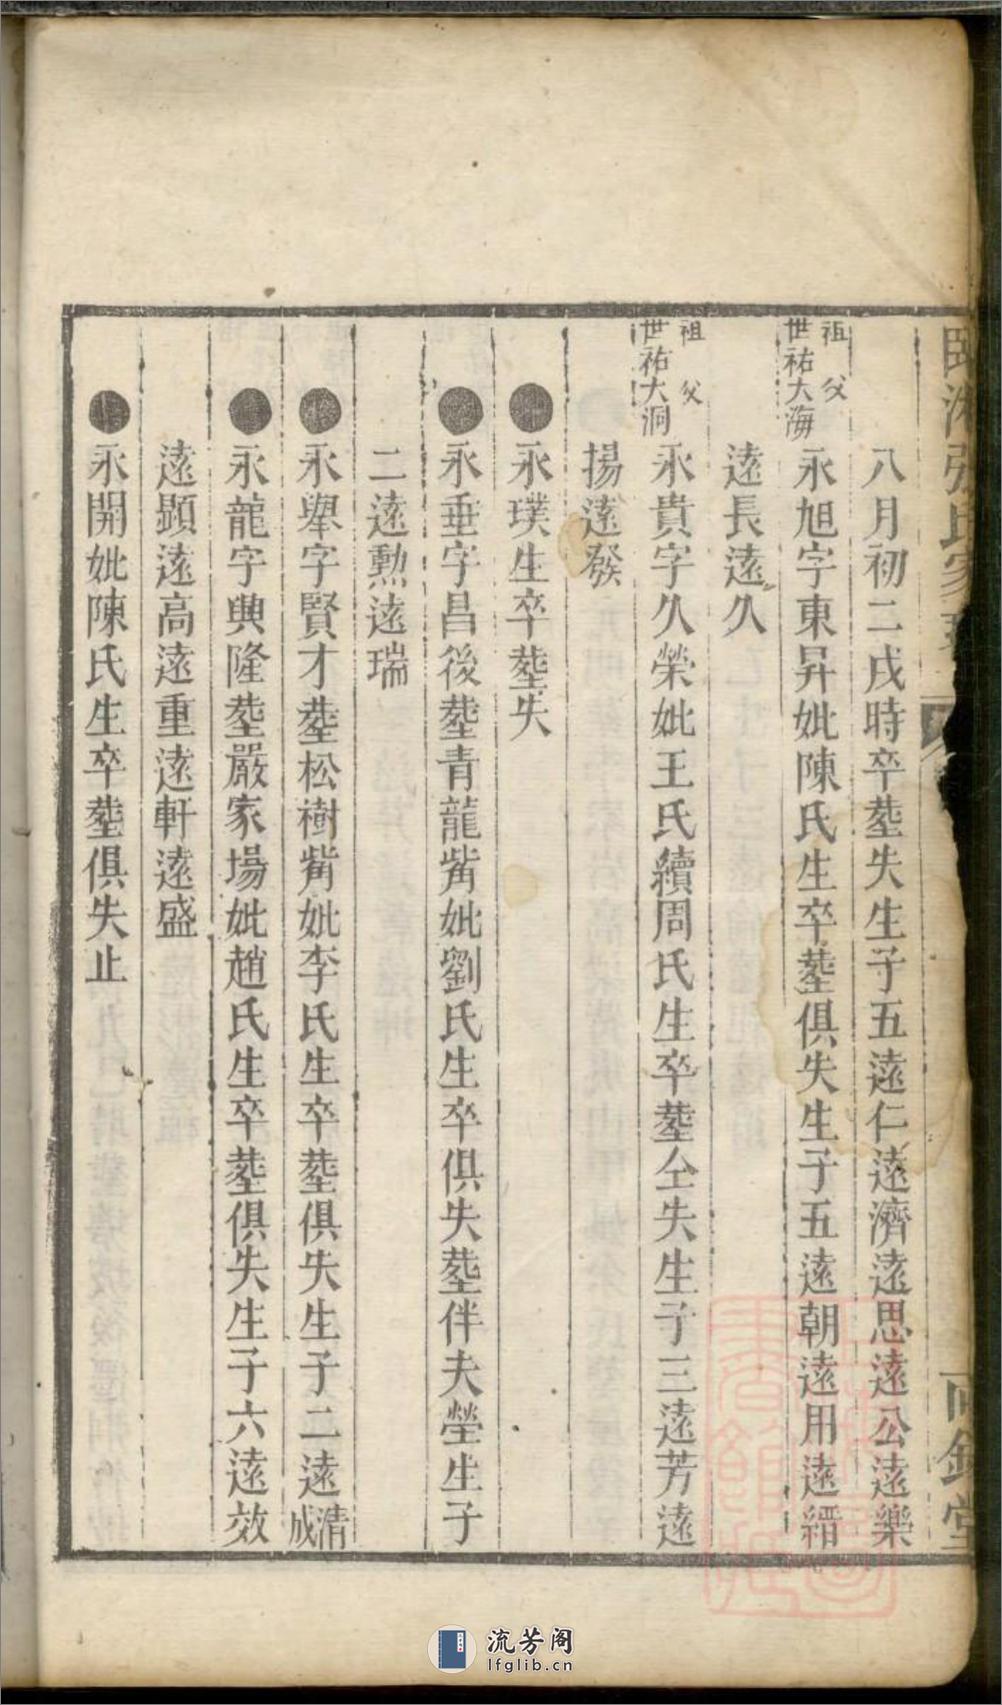 八月初二戌時卒塟失生子五遠仁遠濟遠思遠公遠樂
祖父
世祐大海
永旭字東昇妣陳氏生卒塟俱失生子五遠朝遠用遠縉
遠長遠久
祖父
世祐大洞
永貴字久榮妣王氏續周氏生卒塟仝失生子三遠芳遠
揚遠發
永璞生卒塟失
永垂字昌後塟青龍觜妣劉氏生卒俱失塟伴夫塋生子
二遠勲遠瑞
永舉字賢才塟松樹觜妣李氏生卒塟俱失生子二遠清成
永龍字興隆塟嚴家場妣趙氏生卒塟俱失生子六遠效
遠顕遠高遠重遠軒遠盛
永開妣陳氏生卒塟俱失止
流芳阁
lfglib.cn